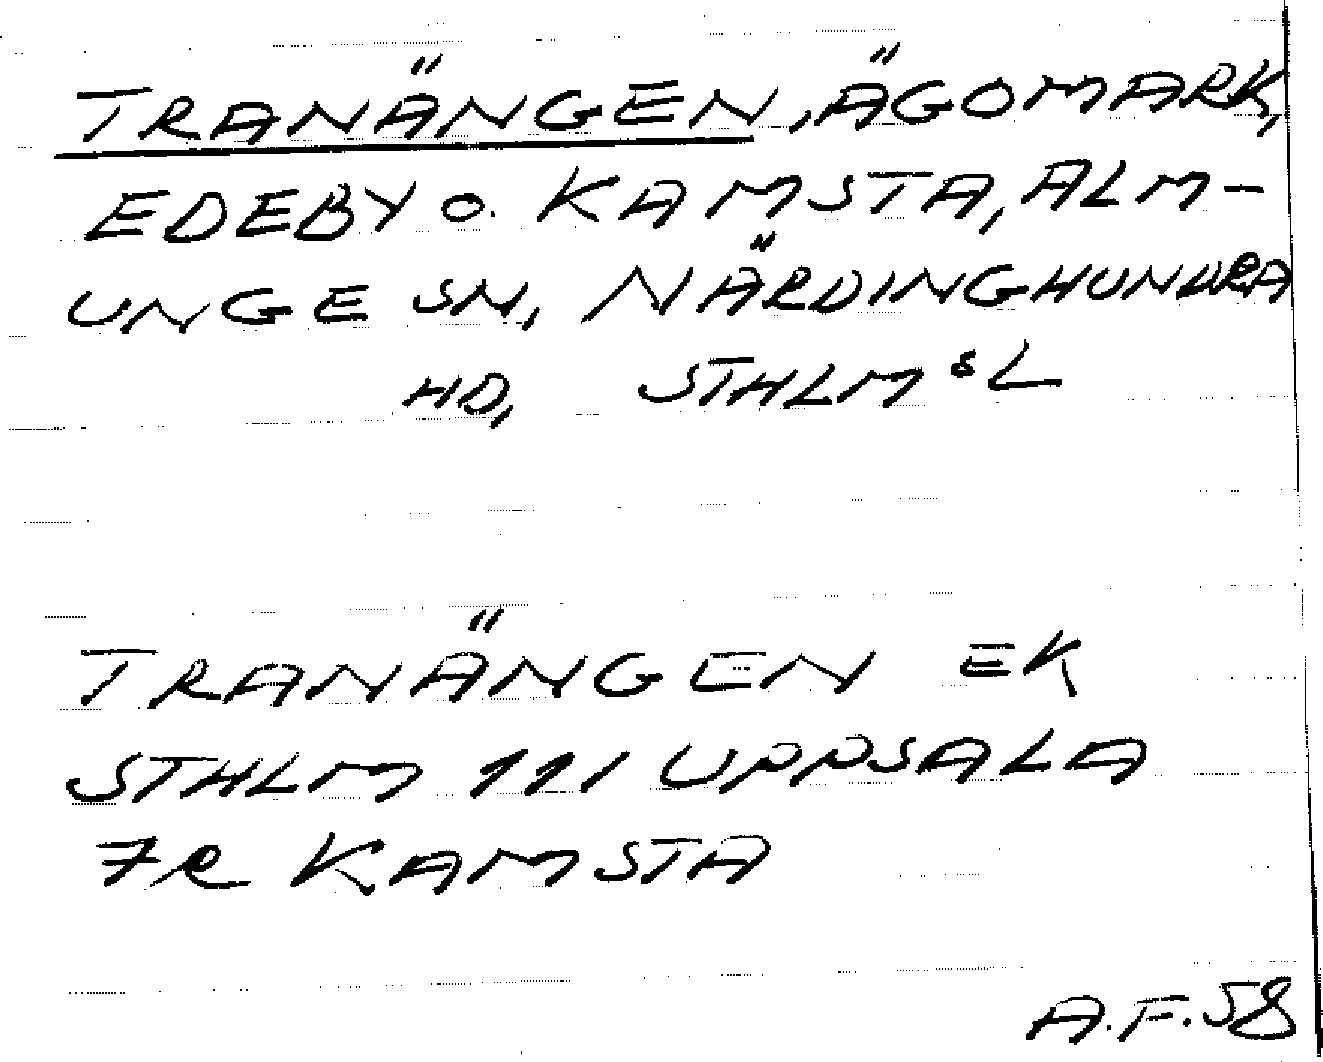 TRANÄNGEN, ÄGOMARK,
EDEBY O. KAMSTA, ALM-
UNGE SN, NÄRDINGHUNDRA
HD, STHLMS L
TRANÄNGEN EK
STHLM 111 UPPSALA
7R KAMSTA
A.F. 58